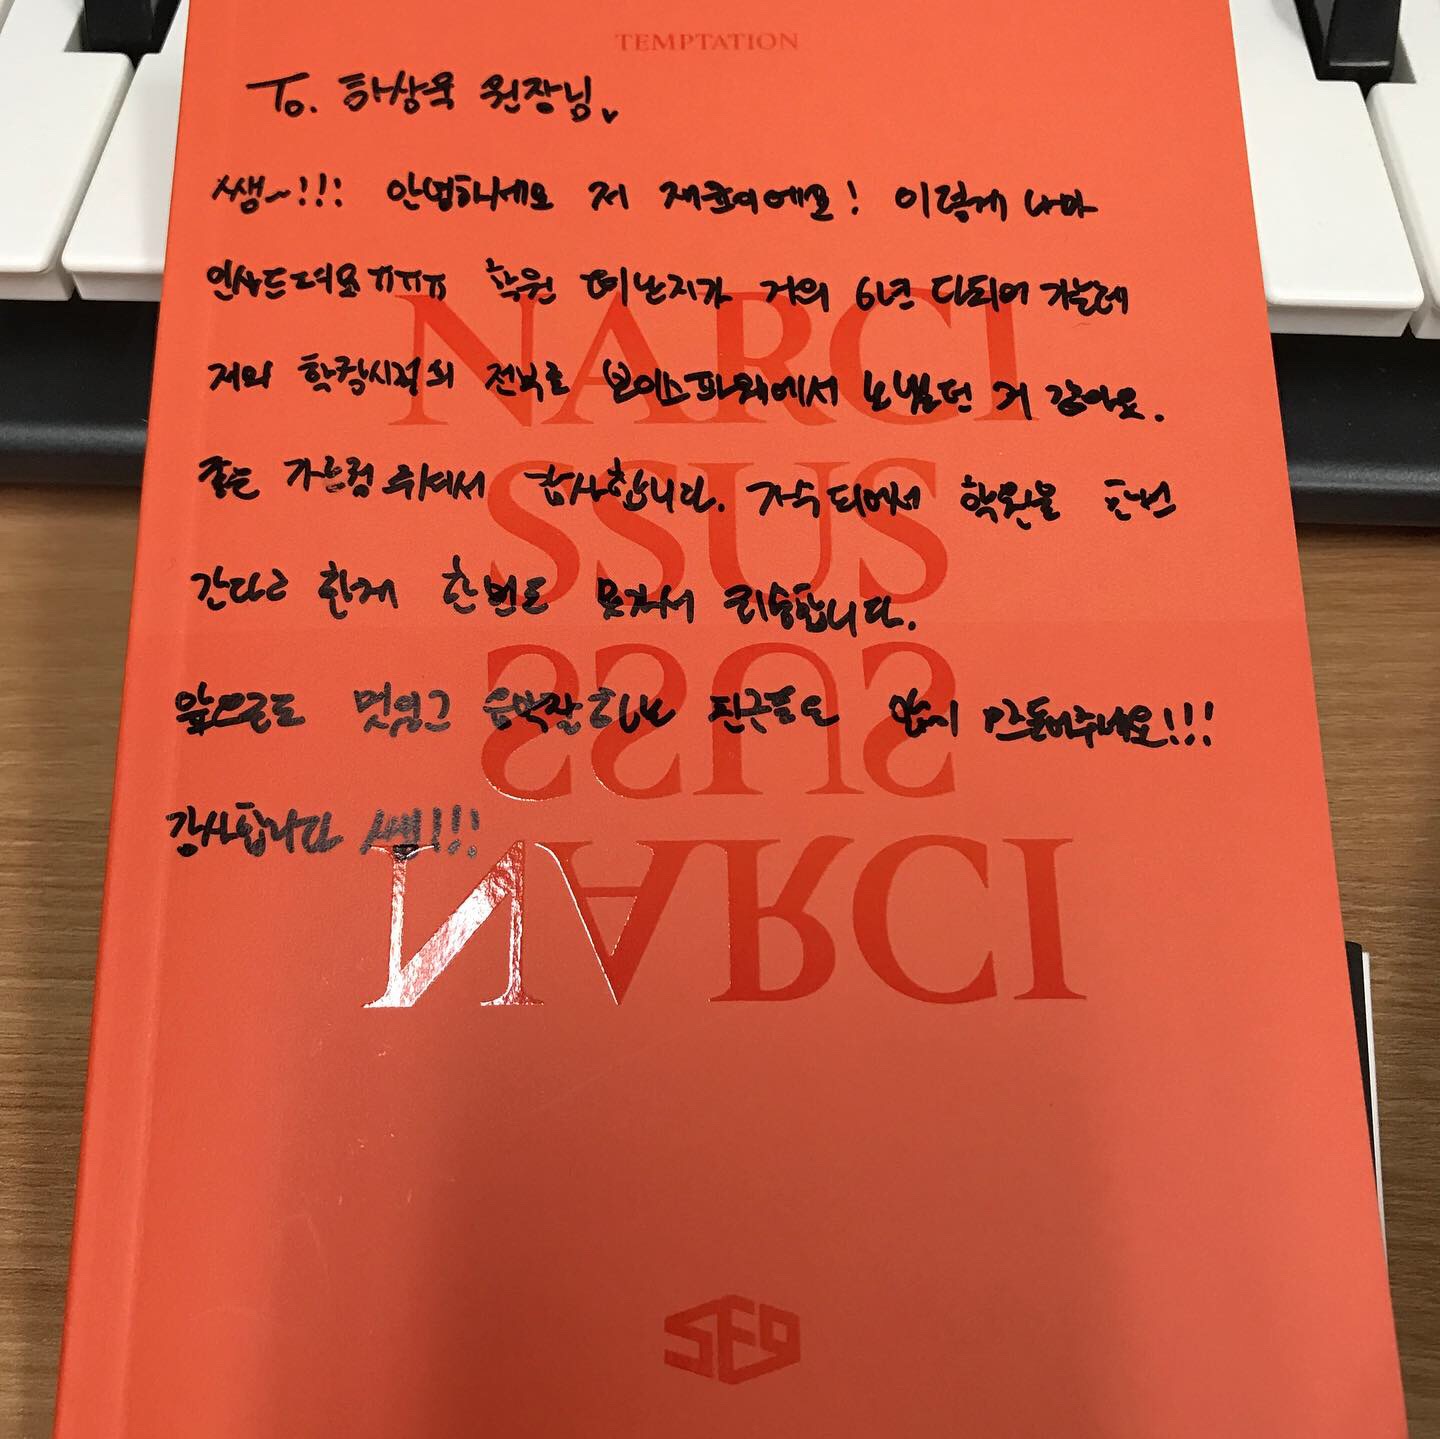 TEMPTATION
To. 하상욱 원장님
쌤~!!! 안녕하세요 저 재윤이에요! 이렇게 나마
인사드려요ㅠㅠㅠ 학원 떠난지가 거의 6년 다되어 가는데
저의 학창시절의 전부를 보이스파워에서 보냈던 거 같아요.
좋은 가르침 주셔서 감사합니다. 가수 되어서 학원을 한번
간다고 한게 한번도 못가서 죄송합니다.
앞으로도 멋있고 음악잘하는 친구들을 많이 만들어주세요!!!
감사합니다 쌤!!!
NARCI
SSUS
SSUS
NARCI
SF9